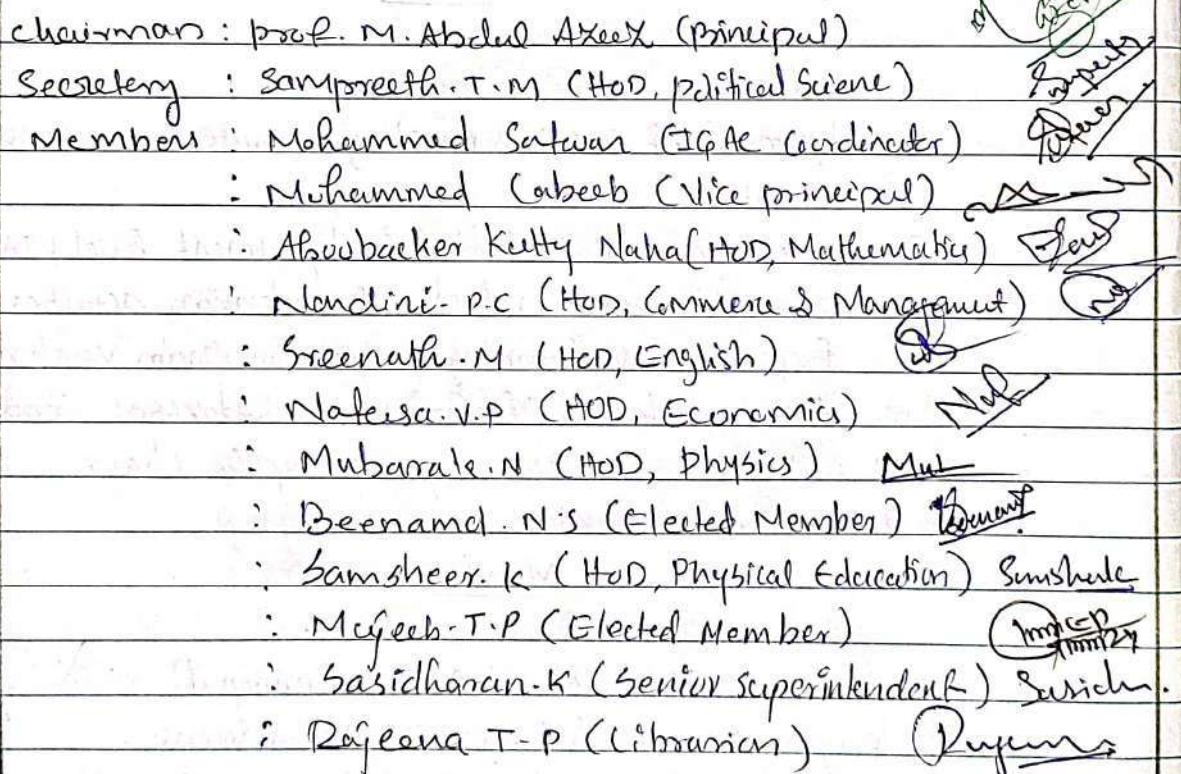 Chairman : prof. M. Abdul Azeez (Principal)
Secretery : Sampreeth. T. M (HOD, political Sciene)
Members : Mohammed Safwan (IQAC Coordinator)
: Mohammed Cabeeb (Vice principal)
: Aboobacker Kutty Naha (HOD, Mathematics)
: Nandini. P.C (HOD, Commerce & Management)
: Sreenath. M (HOD, English)
: Nafeesa. V. P (HOD, Economics)
: Mubarak. N (HOD, Physics)
: Beenamol. N.S (Elected Member)
: Samsheer. K (HOD, Physical Education)
: Mujeeb. T. P (Elected Member)
: Sasidharan. K (Senior Superintendent)
: Rajeena T. P (Librarian)